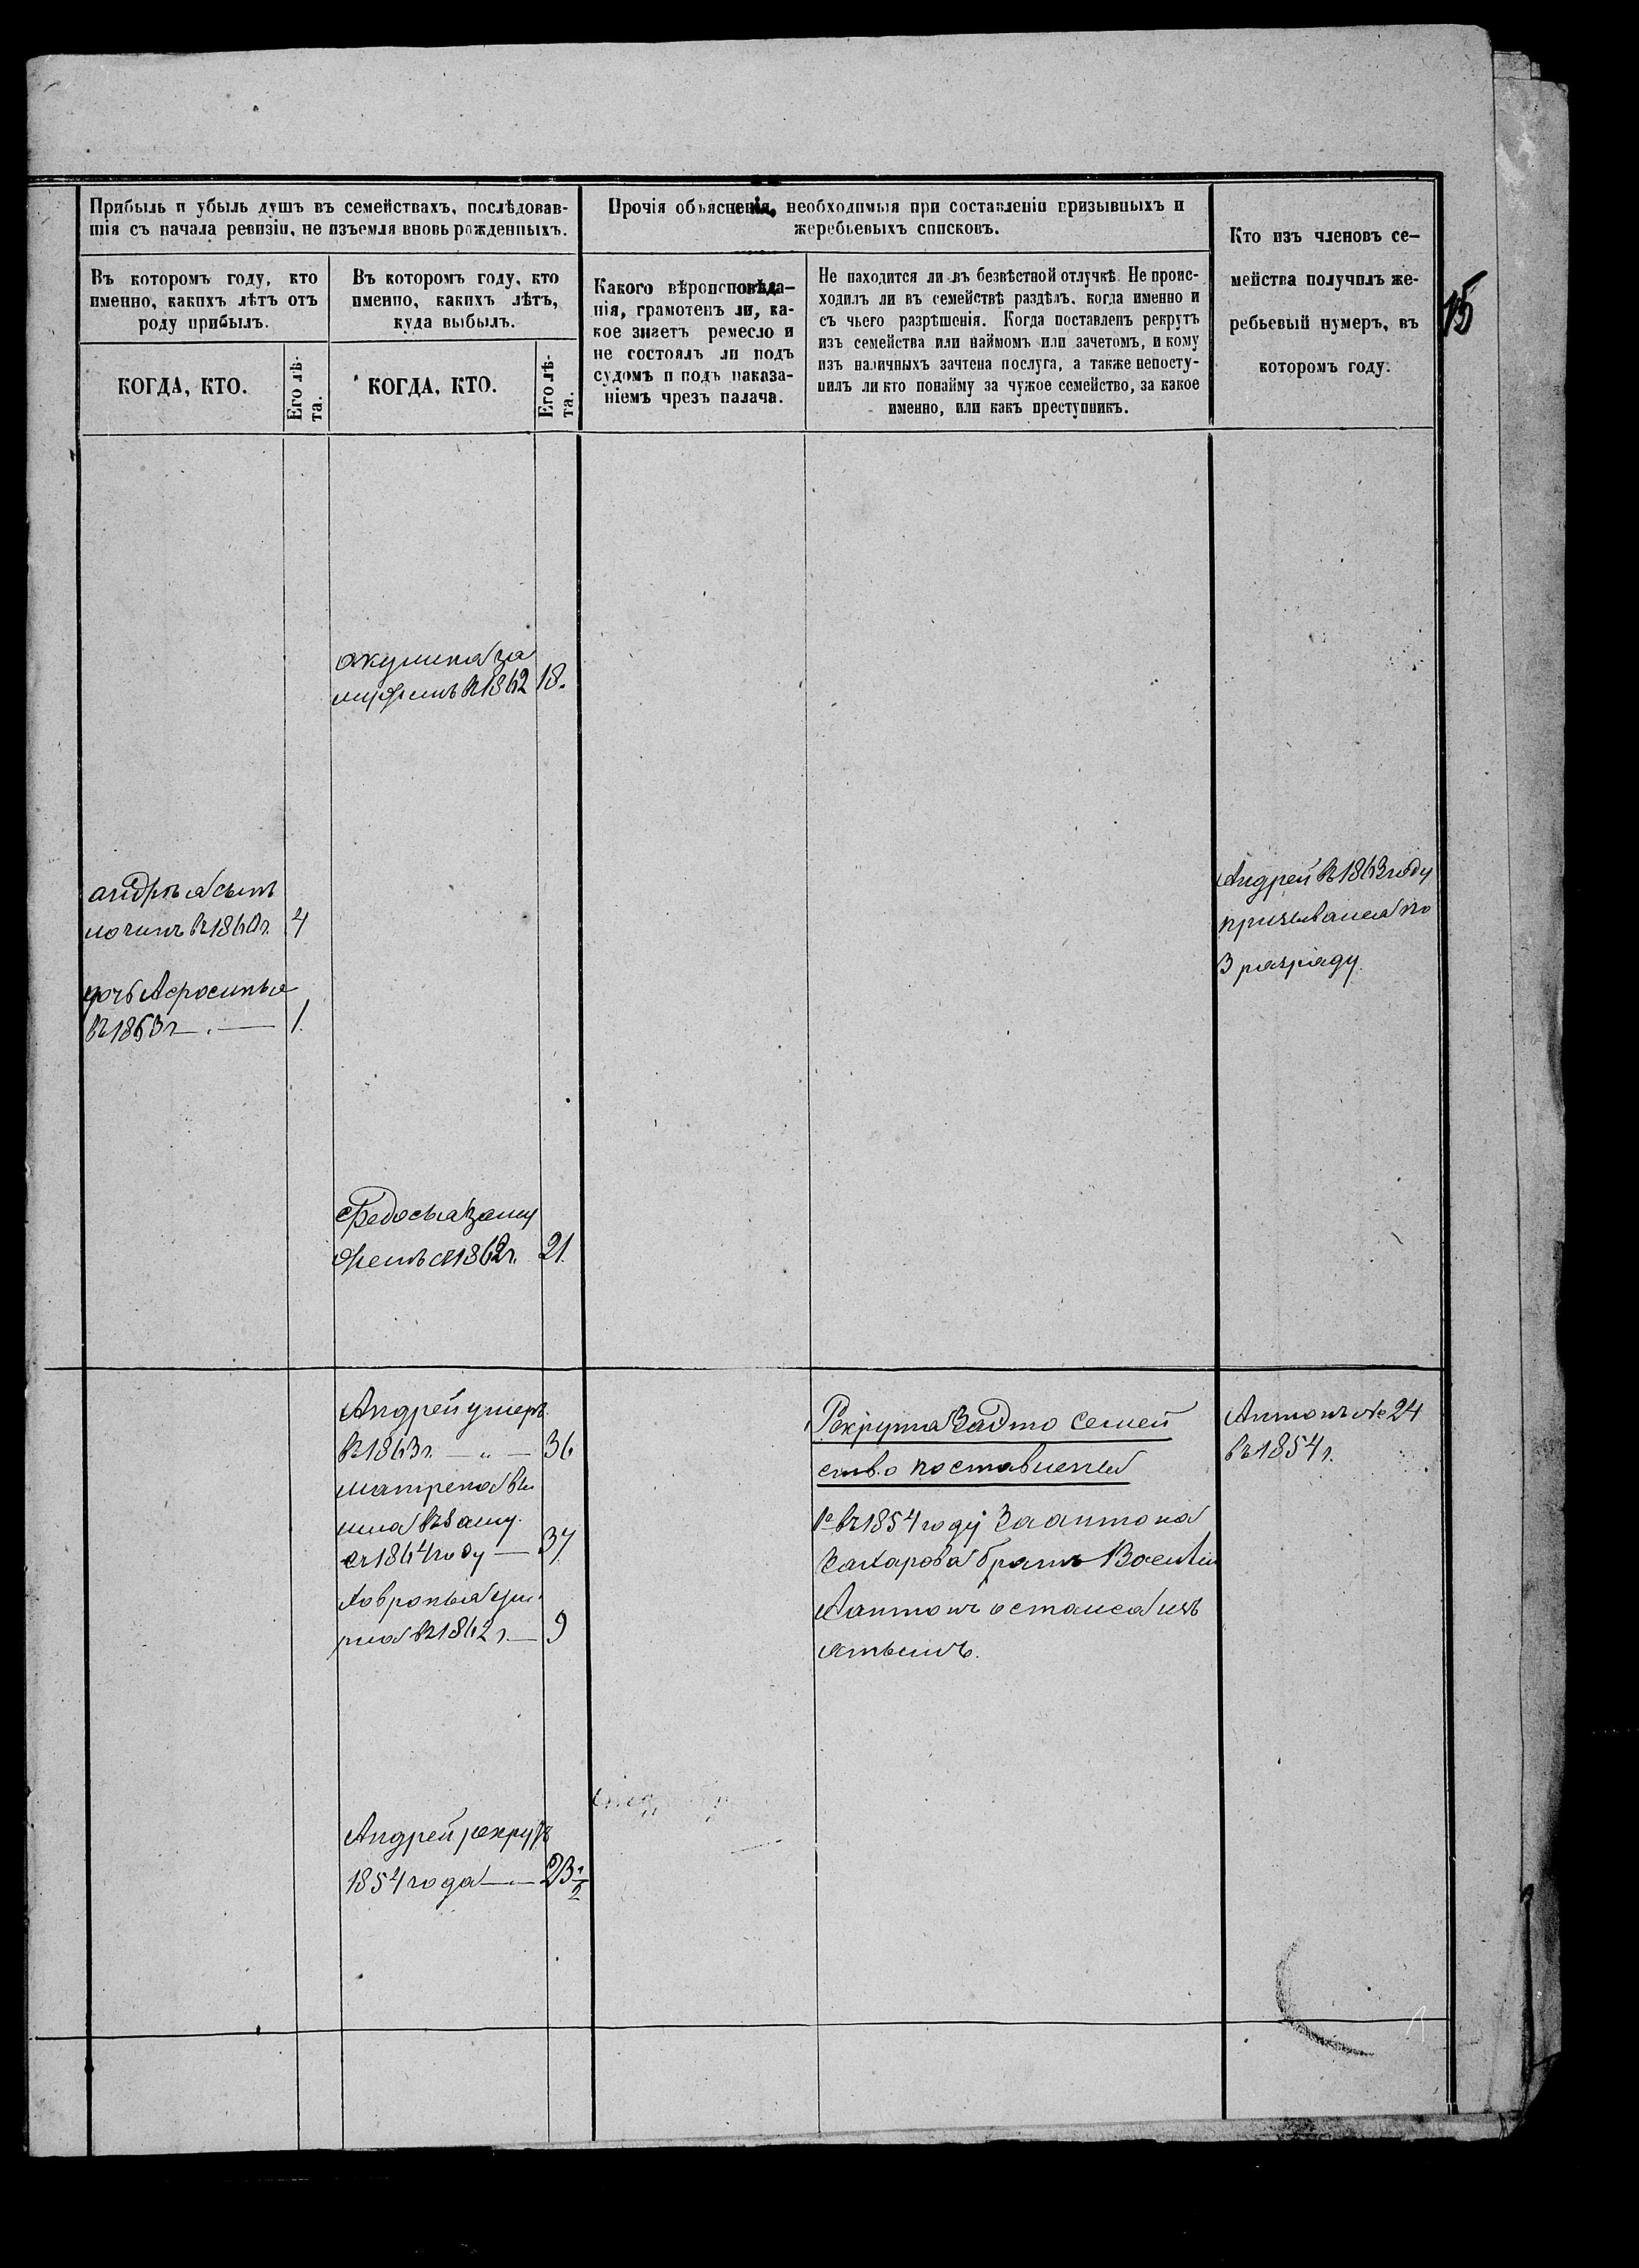 15
Прибыль и убыль душъ въ семействахъ, послѣдовав-
шія съ начала ревизіи, не изъемля вновь рожденныхъ.
Прочія объясненія, необходимыя при составленіи призывныхъ и
жеребьевыхъ списковъ.
Кто изъ членовъ се-
мейства получилъ же-
ребьевый нумеръ, въ
которомъ году.
Въ которомъ году, кто
именно, какихъ лѣтъ отъ
роду прибылъ.
Въ которомъ году, кто
именно, какихъ лѣтъ,
куда выбылъ.
Какого вѣроисповѣда-
нія, грамотенъ ли, ка-
кое знаетъ ремесло и
не состоялъ ли подъ
судомъ и подъ наказа-
ніемъ чрезъ палача.
Не находится ли въ безвѣстной отлучкѣ. Не проис-
ходилъ ли въ семействѣ раздѣлъ, когда именно и
съ чьего разрѣшенія. Когда поставленъ рекрутъ
изъ семейства или наймомъ или зачетомъ, и кому
изъ наличныхъ зачтена послуга, а также непосту-
пилъ ли кто понайму за чужое семейство, за какое
именно, или какъ преступникъ.
КОГДА, КТО.
Его лѣ-
та.
КОГДА, КТО.
Его лѣ-
та.
акулина за
мужемъ въ 1862 18.
андрѣя сынъ
логинъ въ 1860г. 4
дочь Афросинья
въ 1863г — 1.
Андрей въ 1863 году
призывался по
3 разряду.
Федосья заму
жемъ съ 1862г. 21.
Андрей умеръ
въ 1863г. — „ — 36
матрена вы
шла въ заму.
съ 1864 году — 37
Хавронья уме
рла въ 1862 г. — 9
Рекрута за это семей
ство поставлены
1е въ 1854 году За антона
Захарова братъ
Антонъ остался изъ
ятымъ.
Антонъ № 24
въ 1854 г.
Андрей рекрутъ
1854 года — 23 1/2